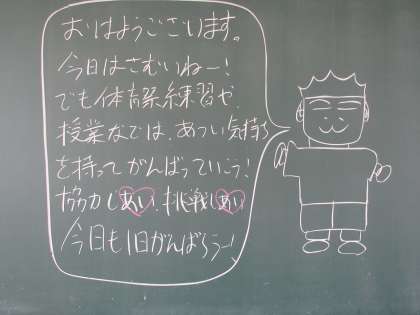 おはようございます。
今日はさむいねー!
でも体育祭練習や、
授業などでは、あつい気持ち
を持ってがんばっていこう!
協力しあい、挑戦しあい
今日も1日がんばろうー!